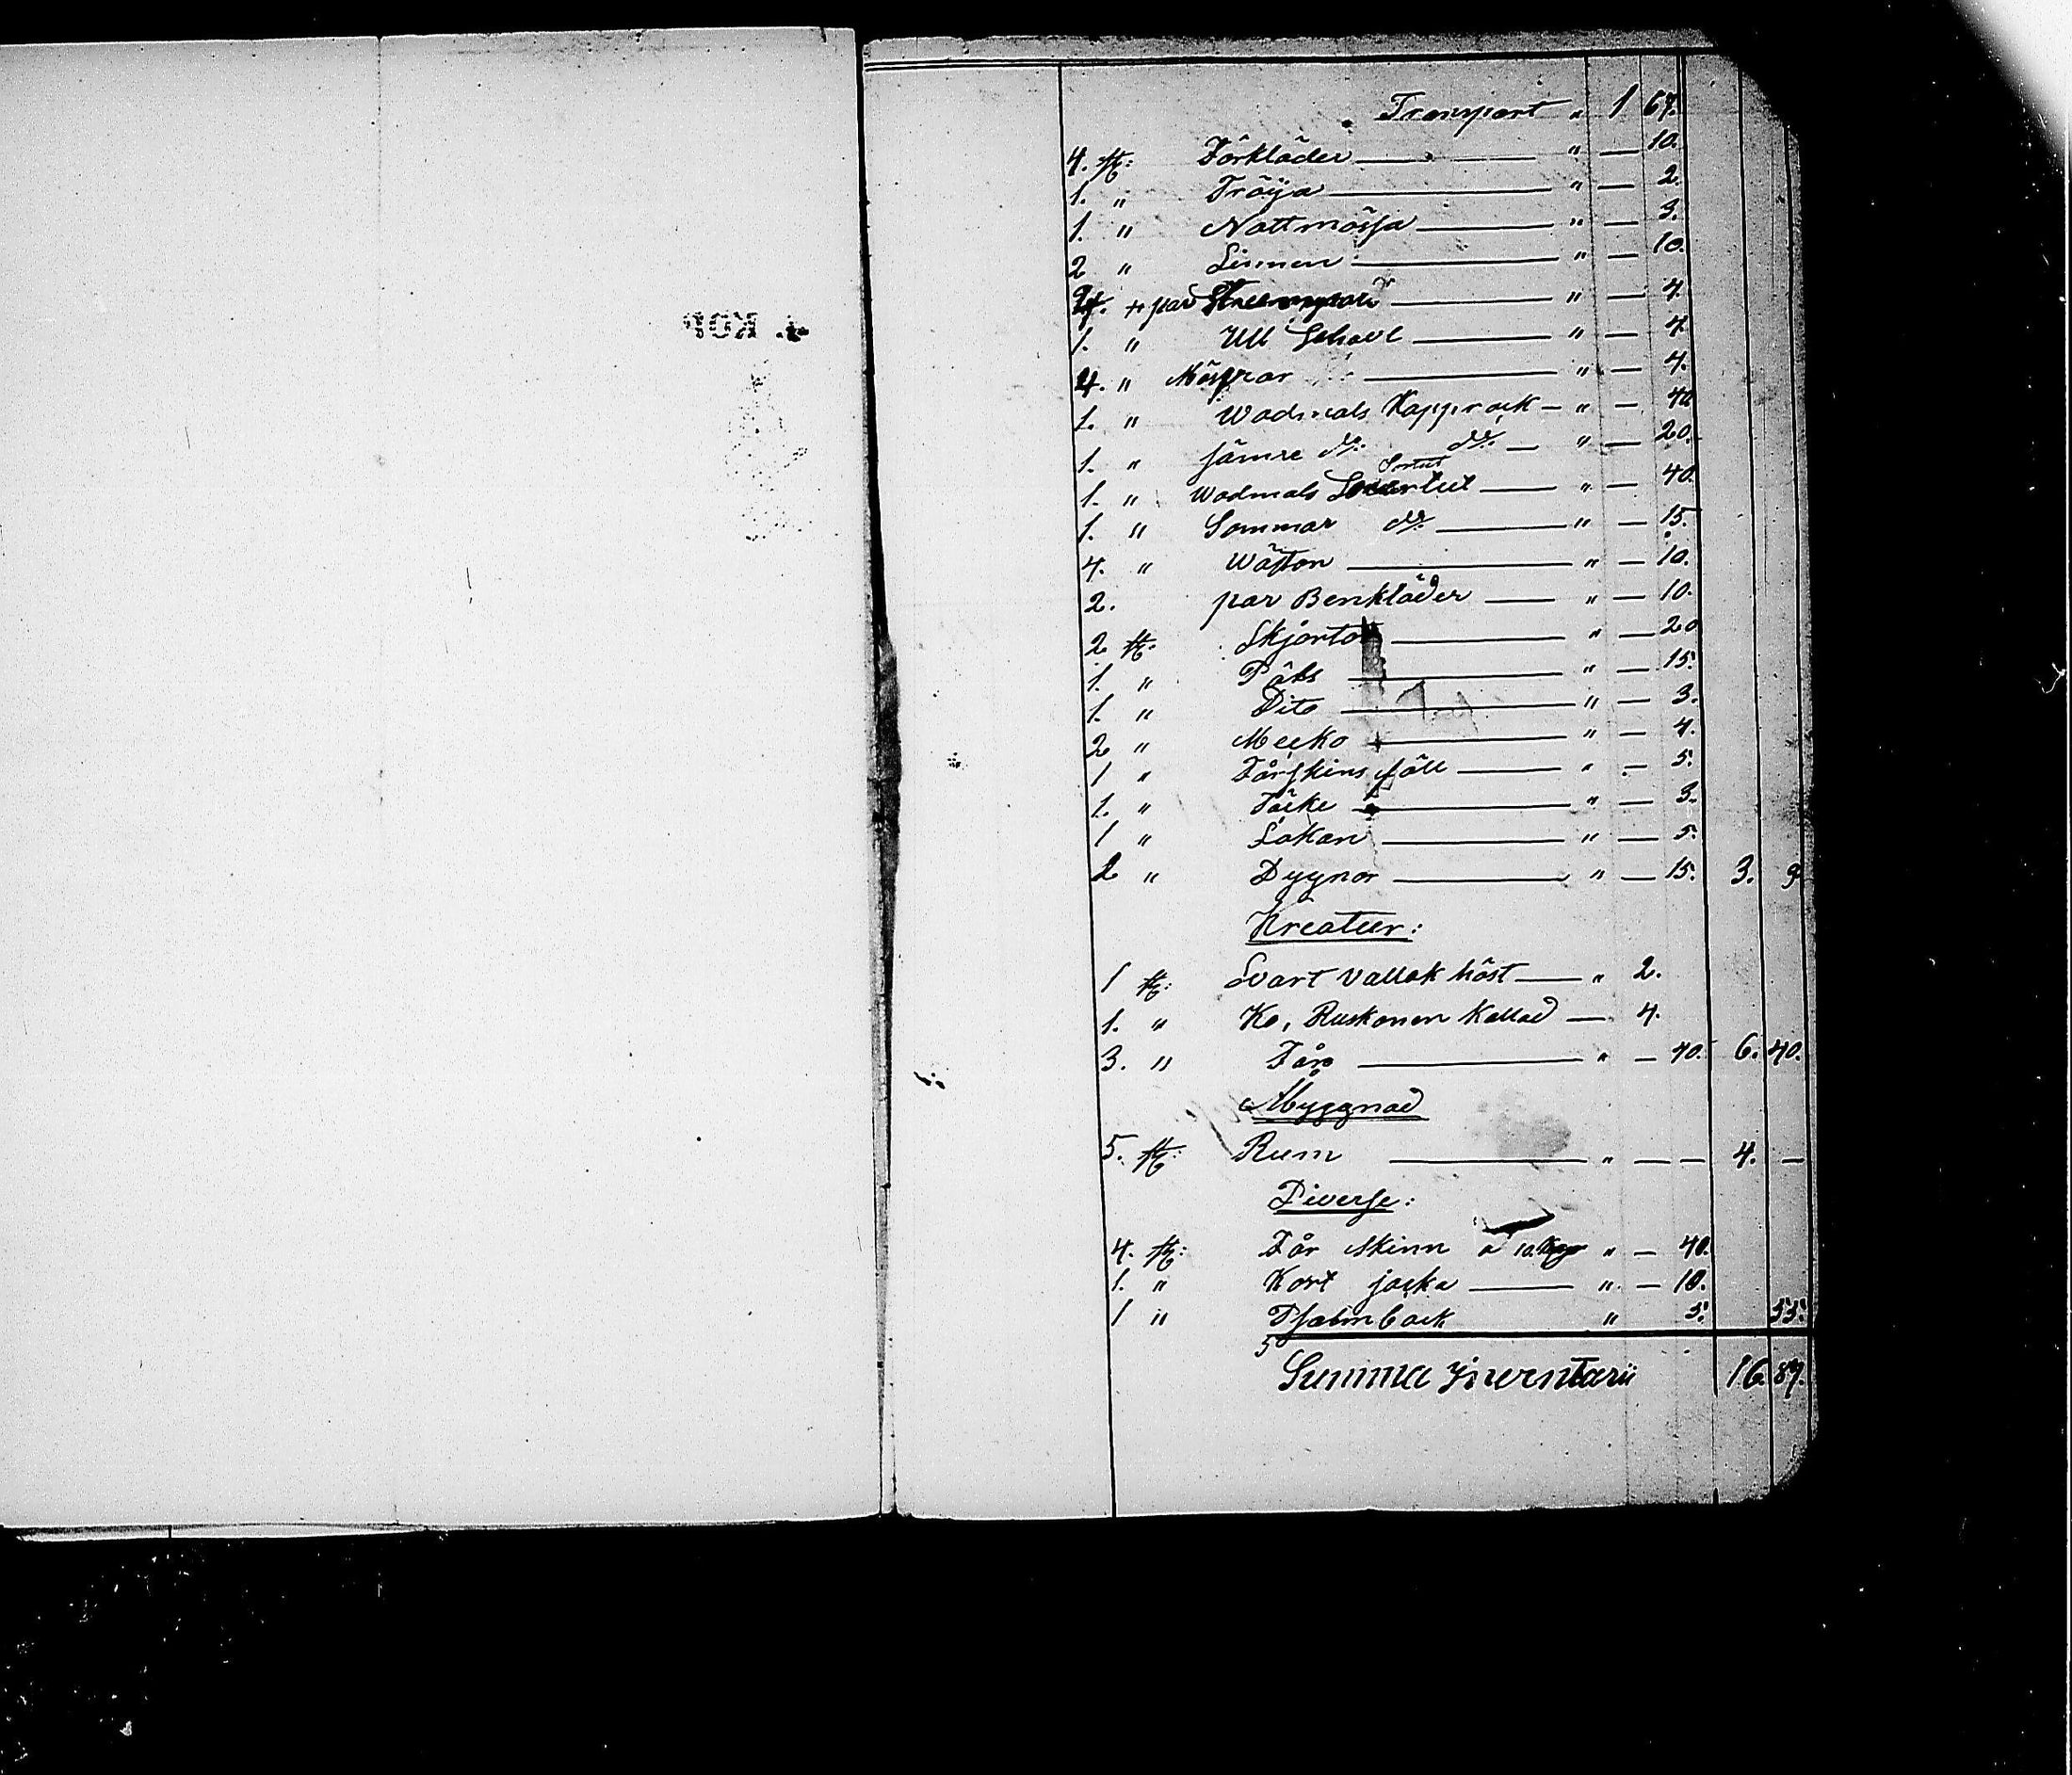 Transport " 1 67.
4. st: Förkläder — " — 10.
1. " Tröija — " — 2.
1. " Nattmössa — " — 3.
2 " Linnen — " — 10.
par — " — 4.
1. " Ull Schavl — " — 4.
4. " Mössor — " — 4.
1. " Wadmals Kapprock — " — 40
1. " sämre do. do. — " — 20.
1. " Wadmals Sortut — " — 40.
1. " Sommar do. — " — 15.
4. " Wäston — " — 10.
2. par Benkläder — " — 10.
2 st. Skjortor — " — 20
1. " Päls — " — 15.
1. " Dito — " — 3.
2 " Mecko — " — 4.
1 " Fårskins fäll — " — 5.
1. " Täcke — " — 3.
1 " Lakan — " — 5.
2 " Dygnor — " — 15. 3. 9
Kreatur:
1 st: Svart vallak häst — " 2.
1. " Ko, Ruskonen kallad — 4.
3. " Får — " — 40. 6. 40.
Åbyggnad
5. st: Rum — " — — 4. —
Diverse:
4. st: Får skinn a 10. " — 40.
1. " Kort jacka — " — 10.
1 " Psalmbock " 5. 55.
Summa Inventarii 16. 87.